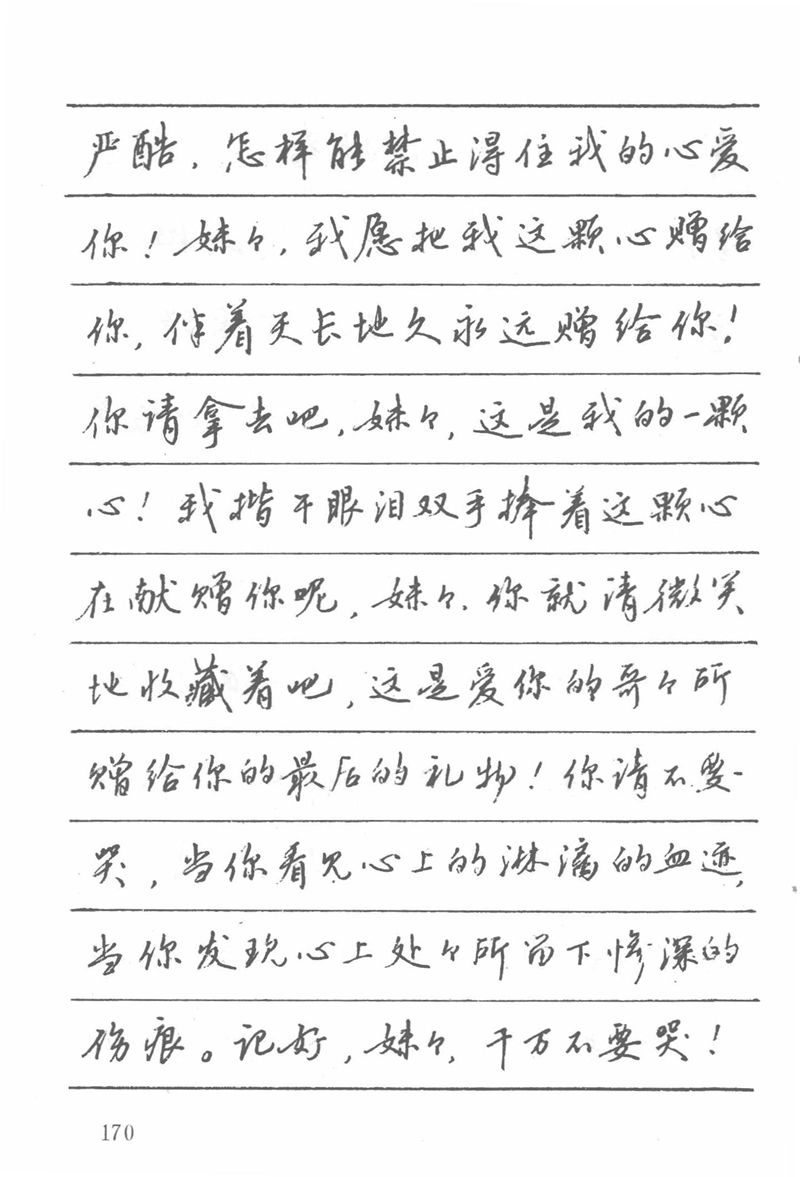 严酷，怎样能禁止得住我的心爱
你！妹々，我愿把我这颗心赠给
你，伴着天长地久永远赠给你！
你请拿去吧，妹々，这是我的一颗
心！我揩干眼泪双手捧着这颗心
在献赠你呢，妹々，你就请微笑
地收藏着吧，这是爱你的哥々所
赠给你的最后的礼物！你请不要
哭，当你看见心上的淋漓的血迹，
当你发现心上处々所留下惨深的
伤痕。记好，妹々，千万不要哭！
170